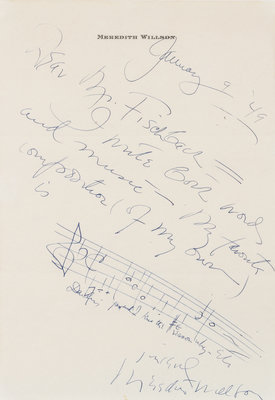 MEREDITH WILLSON
January 9 '49
Dear Mr. Fischbach =
I write both words
and music — My favorite
composition (of my own)
is
Meredith Willson